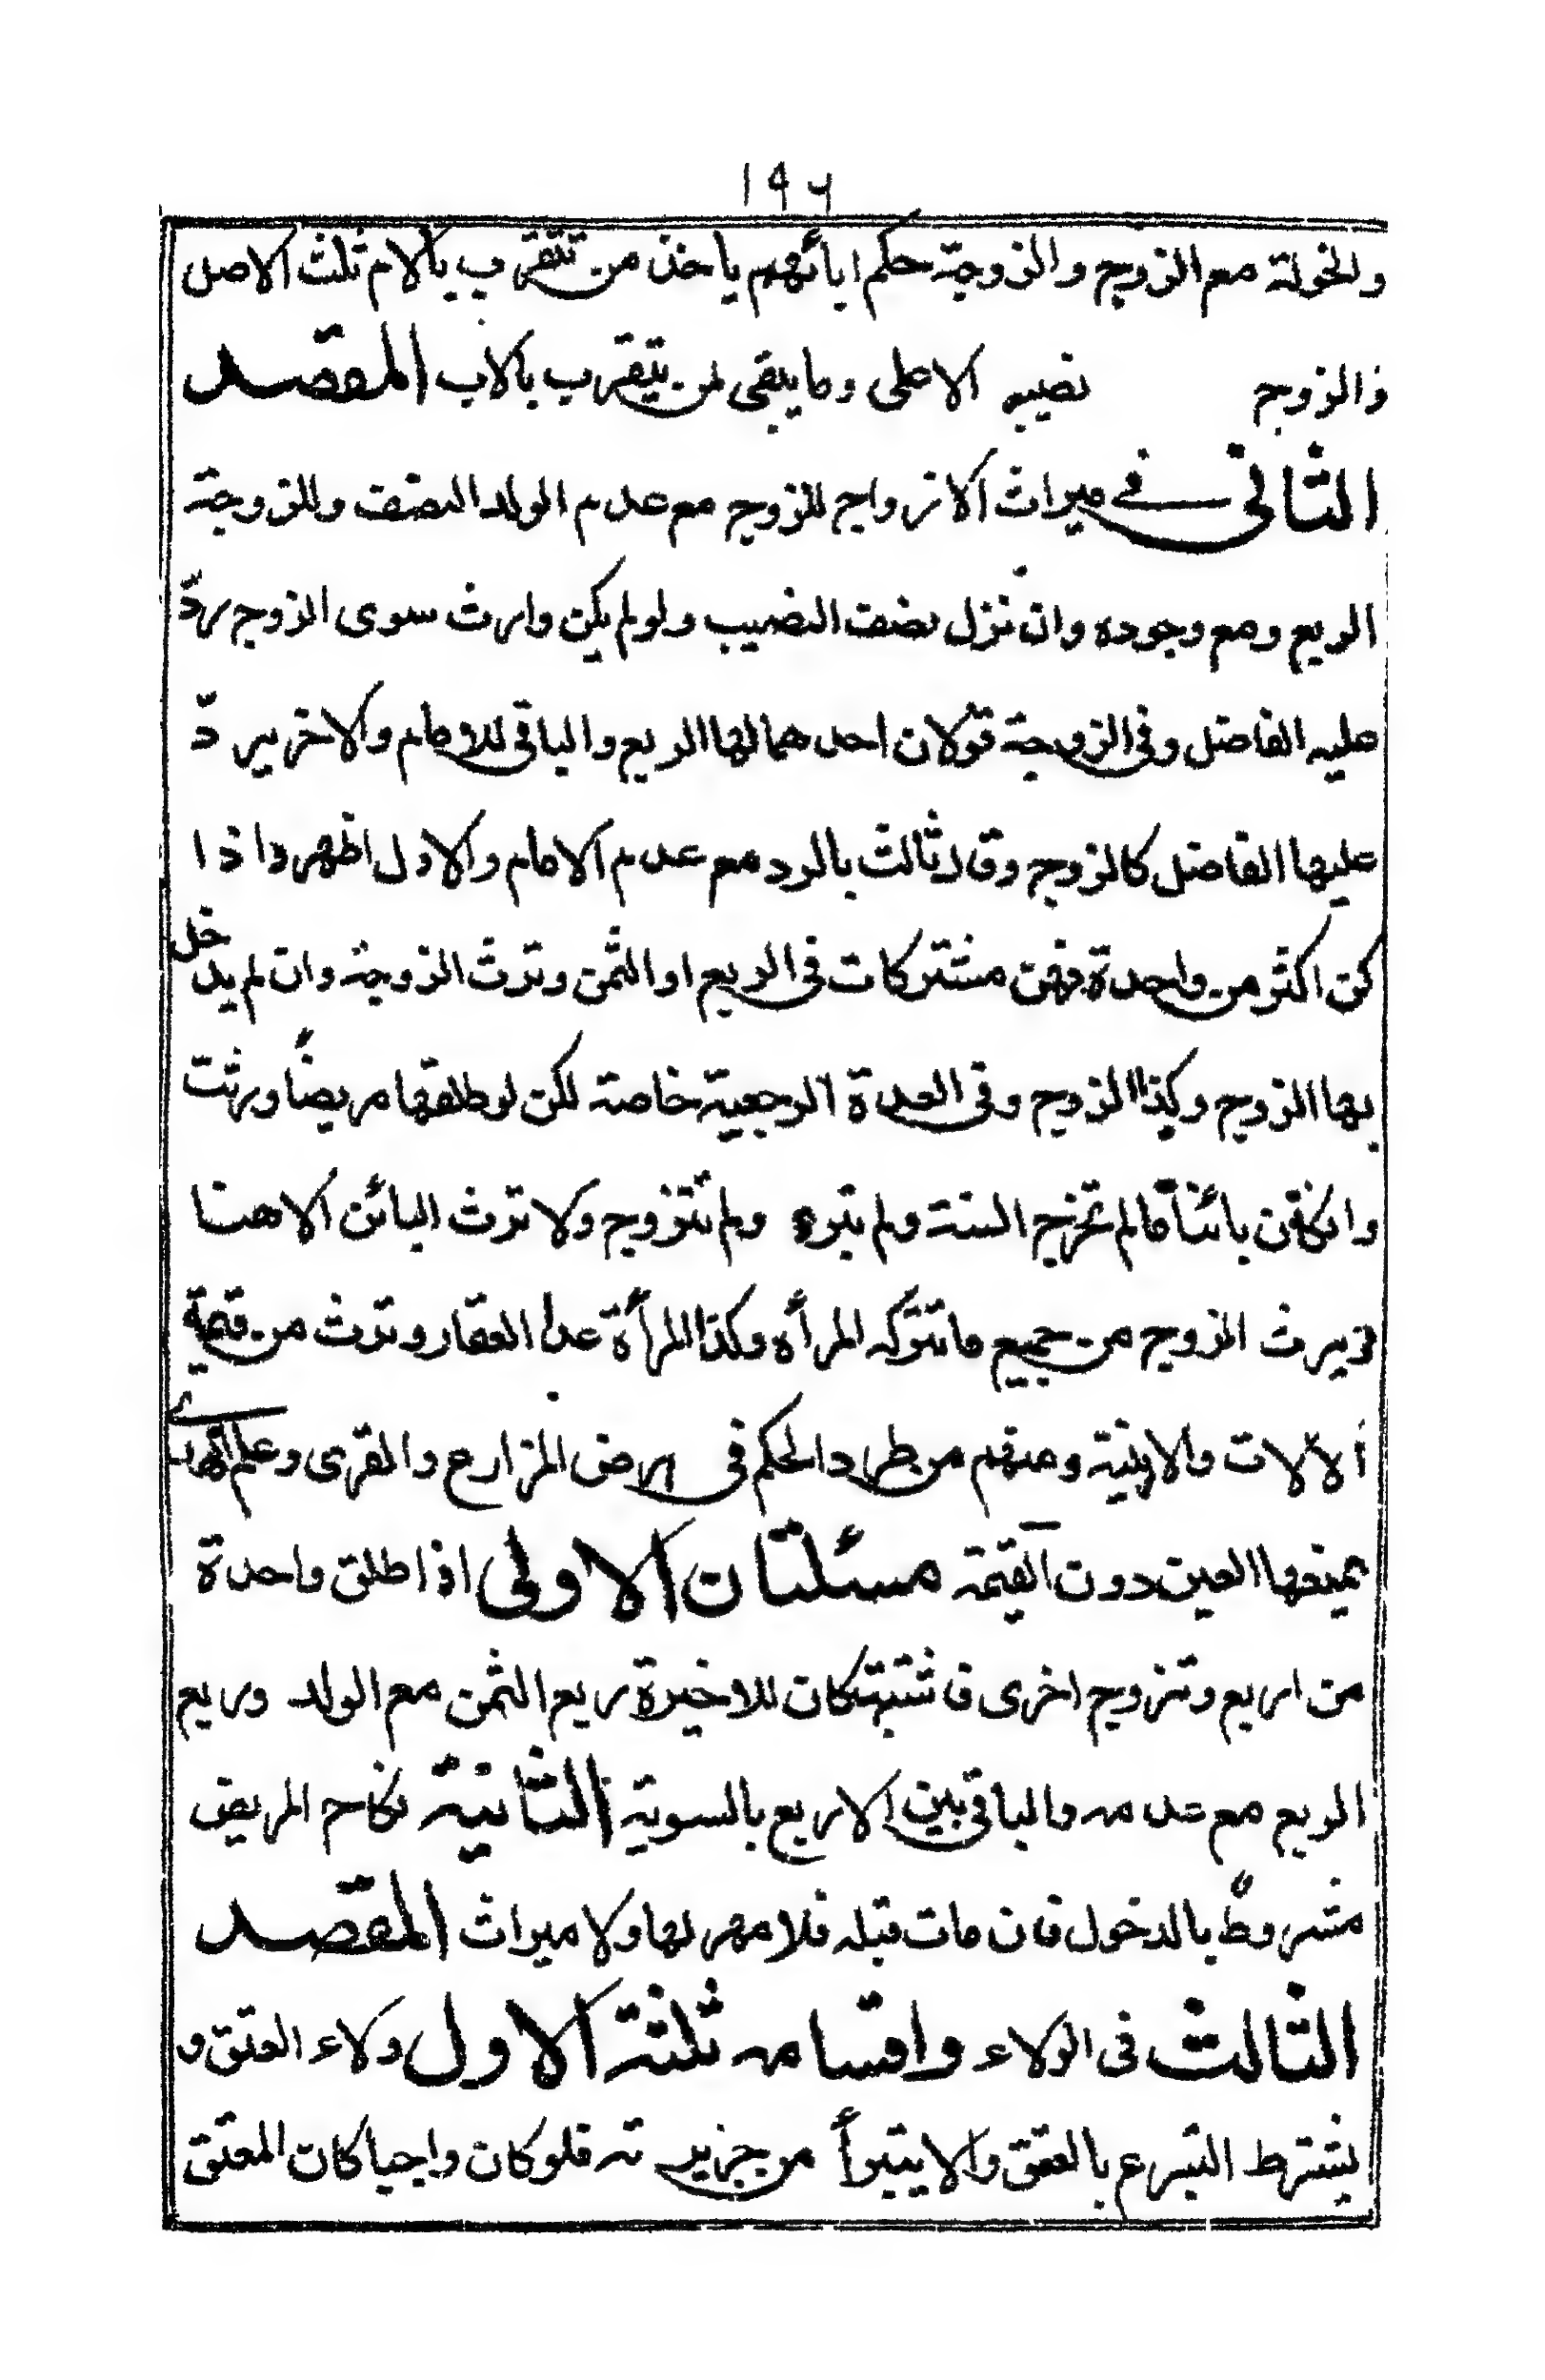 ١٩٦
والخولة مع الزوج والزوجة حكم ابائهم ياخذ من تتقرب بالام ثلث الاصل
والزوج نصيبه الاعلى وما يبقى لمن يتقرب بالاب المقصد
الثانى فى ميراث الازواج للزوج مع عدم الولد النصف وللزوجة
الربع ومع وجوده وان نزل نصف النصيب ولو لم يكن وارث سوى الزوج ردّ
عليه الفاضل وفى الزوجة قولان احدهما لها الربع والباقى للامام والاخر يردّ
عليها الفاضل كالزوج وقال ثالث بالرد مع عدم الامام والاول اظهر واذا
كن اكثر من واحدة فهن مشتركات فى الربع او الثمن وترث الزوجة وان لم يدخل
بها الزوج وكذا الزوج وفى العدة الرجعية خاصة لكن لو طلقها مريضاً ورثت
وان كان بائناً ما لم تخرج السنة ولم يبرء ولم تتزوج ولا ترث البائن الا هنا
ويرث الزوج من جميع ما تتركه المرأه وكذا المرأة عدا العقار وترث من قيمة
الالات والابنية ومنهم من طرد الحكم فى ارض المزارع والقرى وعلم الهدى
يمنعها العين دون القيمة مسئلتان الاولى اذا طلق واحدة
من اربع وتزوج اخرى فاشتبهت كان للاخيرة ربع الثمن مع الولد وربع
الربع مع عدمه والباقى بين الاربع بالسوية الثانية نكاح المريض
مشروط بالدخول فان مات قبله فلا مهر لها ولا ميراث المقصد
الثالث فى الولاء واقسامه ثلثة الاول ولاء العتق و
يشترط التبرع بالعتق والا يتبرأ من جريرته فلو كان واجبا كان المعتق